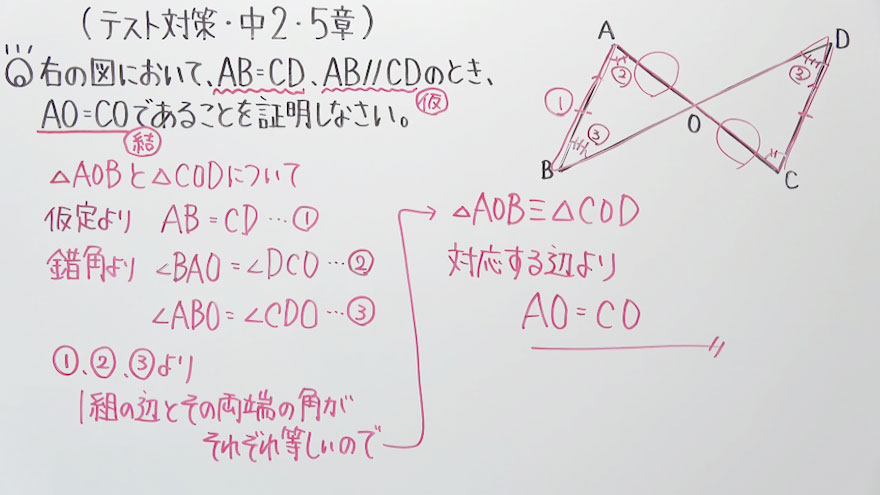 (テスト対策・中2・5章)
Q 右の図において、AB=CD、AB//CDのとき、
仮
AO=COであることを証明しなさい。
結
△AOBと△CODについて
仮定より AB=CD…①
錯角より ∠BAO=∠DCO…②
∠ABO=∠CDO…③
①、②、③より
1組の辺とその両端の角が
それぞれ等しいので
△AOB≡△COD
対応する辺より
AO=CO
A
D
②
③
①
O
③
B
C